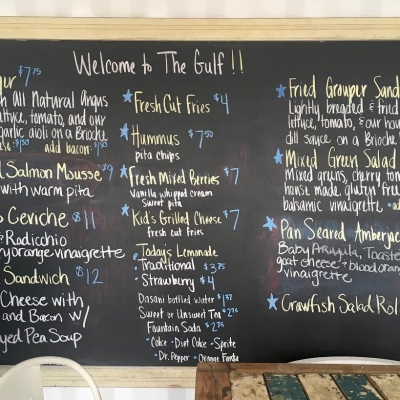 Welcome to The Gulf !!
ger $7.75
h All Natural Angus
ettuce, tomato, and our
garlic aioli on a Brioche
add bacon
Salmon Mousse $9
with warm pita
Ceviche $11
& Radicchio
y orange vinaigrette
Sandwich $12
Cheese with
and Bacon w/
yed Pea Soup
Fresh Cut Fries $4
Hummus $7.50
pita chips
Fresh Mixed Berries $7
Vanilla whipped cream
Sweet pita
Kid's Grilled Cheese $7
fresh cut fries
Today's Lemonade
Traditional $3.75
Strawberry $4
Dasani bottled water $1.37
Sweet or Unsweet Tea $2.75
Fountain Soda $2.75
• Coke • Diet Coke • Sprite
• Dr. Pepper • Orange Fanta
Fried Grouper Sand
Lightly breaded & fried
lettuce, tomato, & our hou
dill sauce on a Brioche
Mixed Green Salad
Mixed greens, cherry tom
house made gluten free
balsamic vinaigrette
Pan Seared Amberjac
Baby Arugula, Toaste
goat cheese + blood oran
vinaigrette
Crawfish Salad Roll